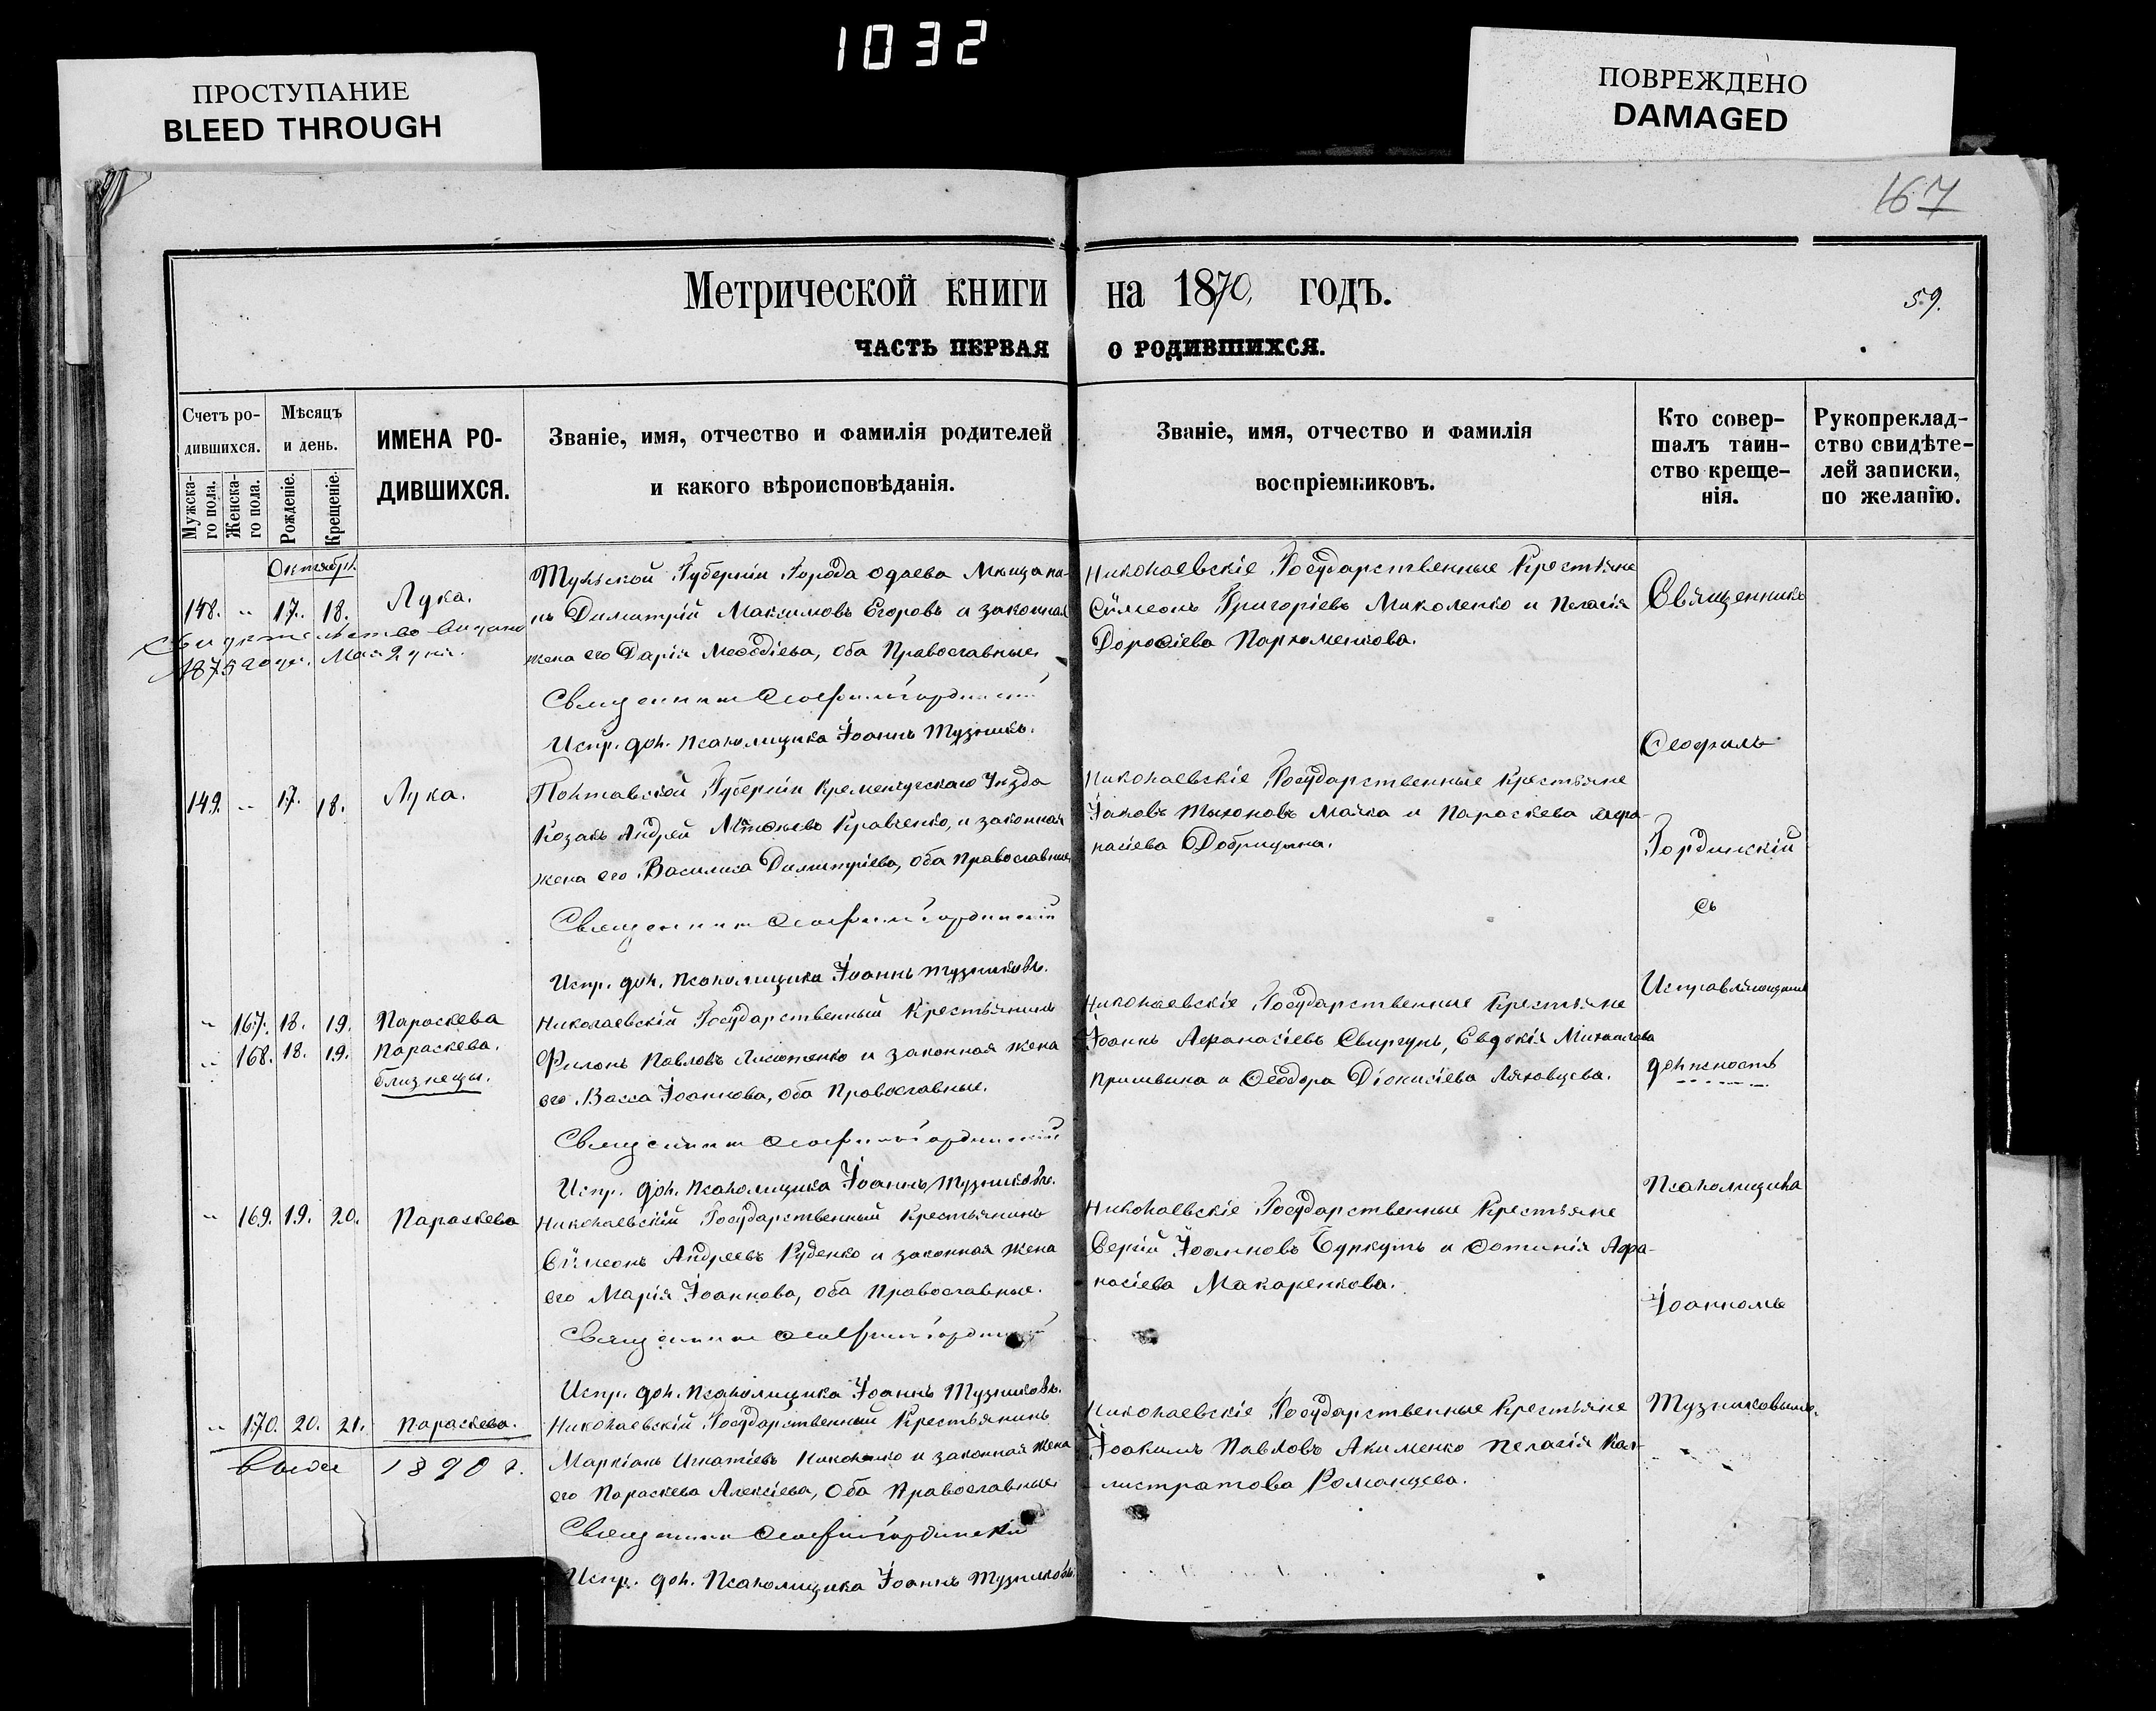 1032
ПРОСТУПАНИЕ
BLEED THROUGH
ПОВРЕЖДЕНО
DAMAGED
167
Метрической книги на 1870, годъ.
59.
ЧАСТЬ ПЕРВАЯ О РОДИВШИХСЯ.
Счетъ ро-
дившихся.
Мужска-
го пола.
Женска-
го пола.
Мѣсяцъ
и день.
Рожденіе.
Крещеніе.
ИМЕНА РО-
ДИВШИХСЯ.
Званіе, имя, отчество и фамилія родителей
и какого вѣроисповѣданія.
Званіе, имя, отчество и фамилія
воспріемниковъ.
Кто совер-
шалъ таин-
ство креще-
нія.
Рукоприклад-
ство свидѣте-
лей записки,
по желанію.
Октябрь.
148. „ 17. 18. Лука.
1875 года. Мая 2 дня.
Тульской Губерніи Города Одоева Мѣщани-
нъ Димитрій Максимовъ Егоровъ и законная
жена его Дарія Меѳодіева, оба Православные
Священникъ Ѳеофилъ Гординскій
Испр. дол. Псаломщика Іоаннъ Музниковъ.
Николаевскіе Государственные Крестьяне
Сѷмеонъ Григоріевъ Миколенко и Пелагія
Дороѳіева Пархоменкова.
149. „ 17. 18. Лука.
Полтавской Губерніи Кременчугскаго Уѣзда
Козакъ Андрей Кравченко, и законная
жена его Василиса Димитріева, оба Православные
Священникъ Ѳеофилъ Гординскій
Испр. дол. Псаломщика Іоаннъ Музниковъ.
Николаевскіе Государственные Крестьяне
Іаковъ Тихоновъ Мачка и Параскева Аѳа-
насіева Добрицына.
„ 167. 18. 19. Параскева
„ 168. 18. 19. Параскева.
близнецы.
Николаевскій Государственный Крестьянинъ
Филонъ Павловъ и законная жена
его Васса Іоаннова, оба Православные.
Священникъ Ѳеофилъ Гординскій
Испр. дол. Псаломщика Іоаннъ Музниковъ.
Николаевскіе Государственные Крестьяне
Іоаннъ Аѳанасіевъ Свиргунъ, Евдокія Михаилова
Пришвина и Ѳеодора Діонисіева Ляховцева.
„ 169. 19. 20. Параскева
Николаевскій Государственный Крестьянинъ
Сѷмеонъ Андреевъ Руденко и законная жена
его Марія Іоаннова, оба Православные.
Священникъ Ѳеофилъ Гординскій
Испр. дол. Псаломщика Іоаннъ Музниковъ.
Николаевскіе Государственные Крестьяне
Сергій Іоанновъ Буркутъ и Фотинія Аѳа-
насіева Макаренкова.
„ 170. 20. 21. Параскева.
1890 г.
Николаевскій Государственный Крестьянинъ
Маркіанъ Игнатіевъ и законная жена
его Параскева Алексіева, Оба Православные
Священникъ Ѳеофилъ Гординскій
Испр. дол. Псаломщика Іоаннъ Музниковъ.
Николаевскіе Государственные Крестьяне
Іоакимъ Павловъ Акименко Пелагія Кал-
листратова Романцева.
Священникъ
Ѳеофилъ
Гординскій
съ
Исправляющимъ
должность
Псаломщика
Іоанномъ
Музниковымъ.